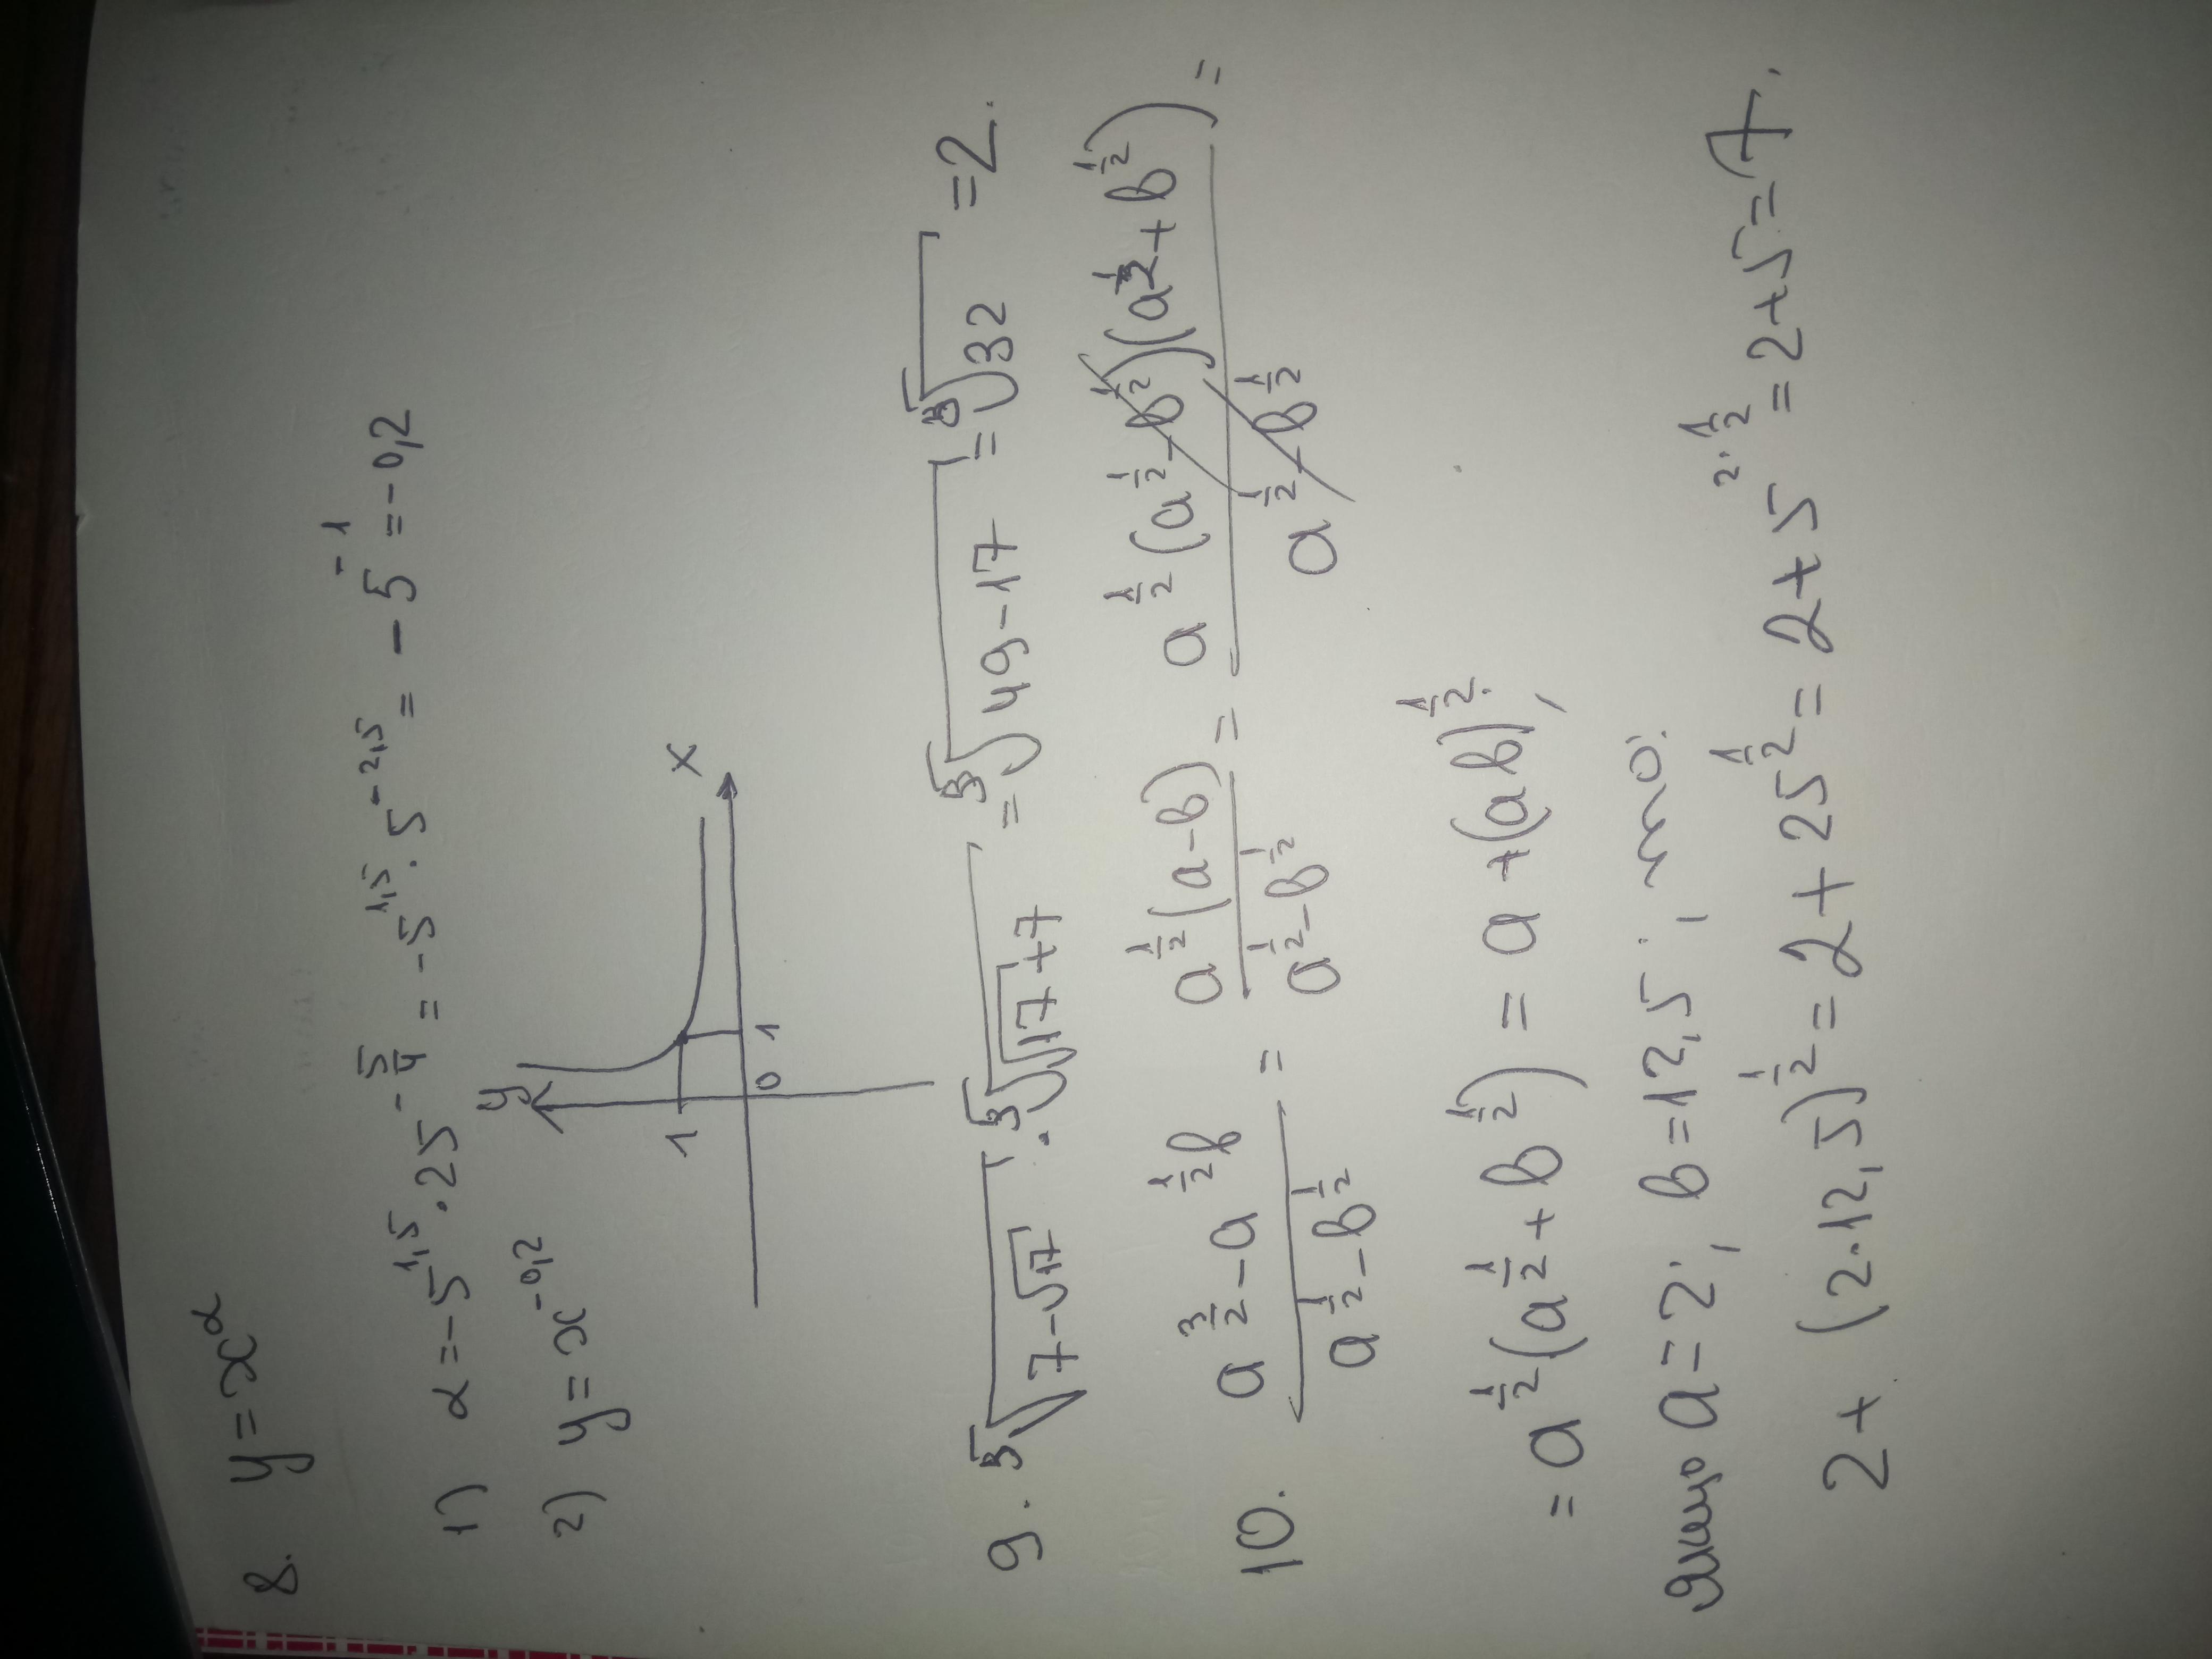 8. y = x^α
1) α = -5^1,5 · 25^-5/4 = -5^1,5 · 5^-2,5 = -5^-1 = -0,2
2) y = x^-0,2
y
1
0 1 x
9. ⁵√(7-√17) · ⁵√(√17+7) = ⁵√(49-17) = ⁵√32 = 2.
10. (a^3/2 - a^1/2 b)/(a^1/2 - b^1/2) = (a^1/2 (a-b))/(a^1/2 - b^1/2) = (a^1/2 (a^1/2 - b^1/2)(a^1/2 + b^1/2))/(a^1/2 - b^1/2) =
= a^1/2 (a^1/2 + b^1/2) = a + (ab)^1/2;
якщо a = 2; b = 12,5; то:
2 + (2·12,5)^1/2 = 2 + 25^1/2 = 2 + 5^2·1/2 = 2+5 = 7.